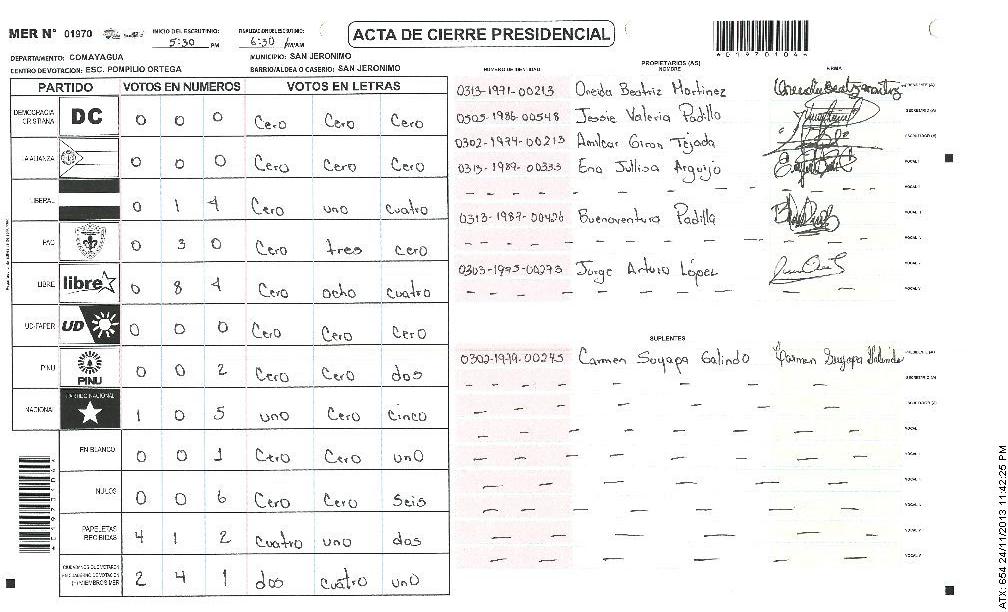 MER N° 01970
INICIO DEL ESCRUTINIO: 5:30 PM
FINALIZACION DEL ESCRUTINIO: 6:30 PM/AM
ACTA DE CIERRE PRESIDENCIAL
DEPARTAMENTO: COMAYAGUA
MUNICIPIO: SAN JERONIMO
CENTRO DE VOTACION: ESC. POMPILIO ORTEGA
BARRIO/ALDEA O CASERIO: SAN JERONIMO
PARTIDO VOTOS EN NUMEROS VOTOS EN LETRAS
DEMOCRACIA CRISTIANA DC 0 0 0 Cero Cero Cero
LA ALIANZA 0 0 0 Cero Cero Cero
LIBERAL 0 1 4 Cero uno cuatro
PAC 0 3 0 Cero tres cero
LIBRE libre 0 8 4 Cero ocho cuatro
UD-FAPER UD 0 0 0 Cero Cero Cero
PINU PINU 0 0 2 Cero Cero dos
NACIONAL PARTIDO NACIONAL 1 0 5 uno Cero Cinco
EN BLANCO 0 0 1 Cero Cero uno
NULOS 0 0 6 Cero Cero Seis
PAPELETAS RECIBIDAS 4 1 2 cuatro uno dos
2 4 1 dos cuatro uno
PROPIETARIOS (AS)
NUMERO DE IDENTIDAD NOMBRE FIRMA
0313-1971-00213 Oneida Beatriz Martinez PRESIDENTE (A)
0505-1986-00548 Jessie Valeria Padilla SECRETARIO (A)
0302-1974-00213 Amilcar Giron Tejada ESCRUTADOR (A)
0313-1987-00333 Ena Jullisa Arguijo VOCAL I
0313-1987-00426 Buenaventura Padilla
0303-1975-00273 Jorge Arturo López
SUPLENTES
0302-1979-00245 Carmen Suyapa Galindo Carmen Suyapa Galindo PRESIDENTE (A)
SECRETARIO (A)
ESCRUTADOR (A)
ATX: 654 24/11/2013 11:42:25 PM